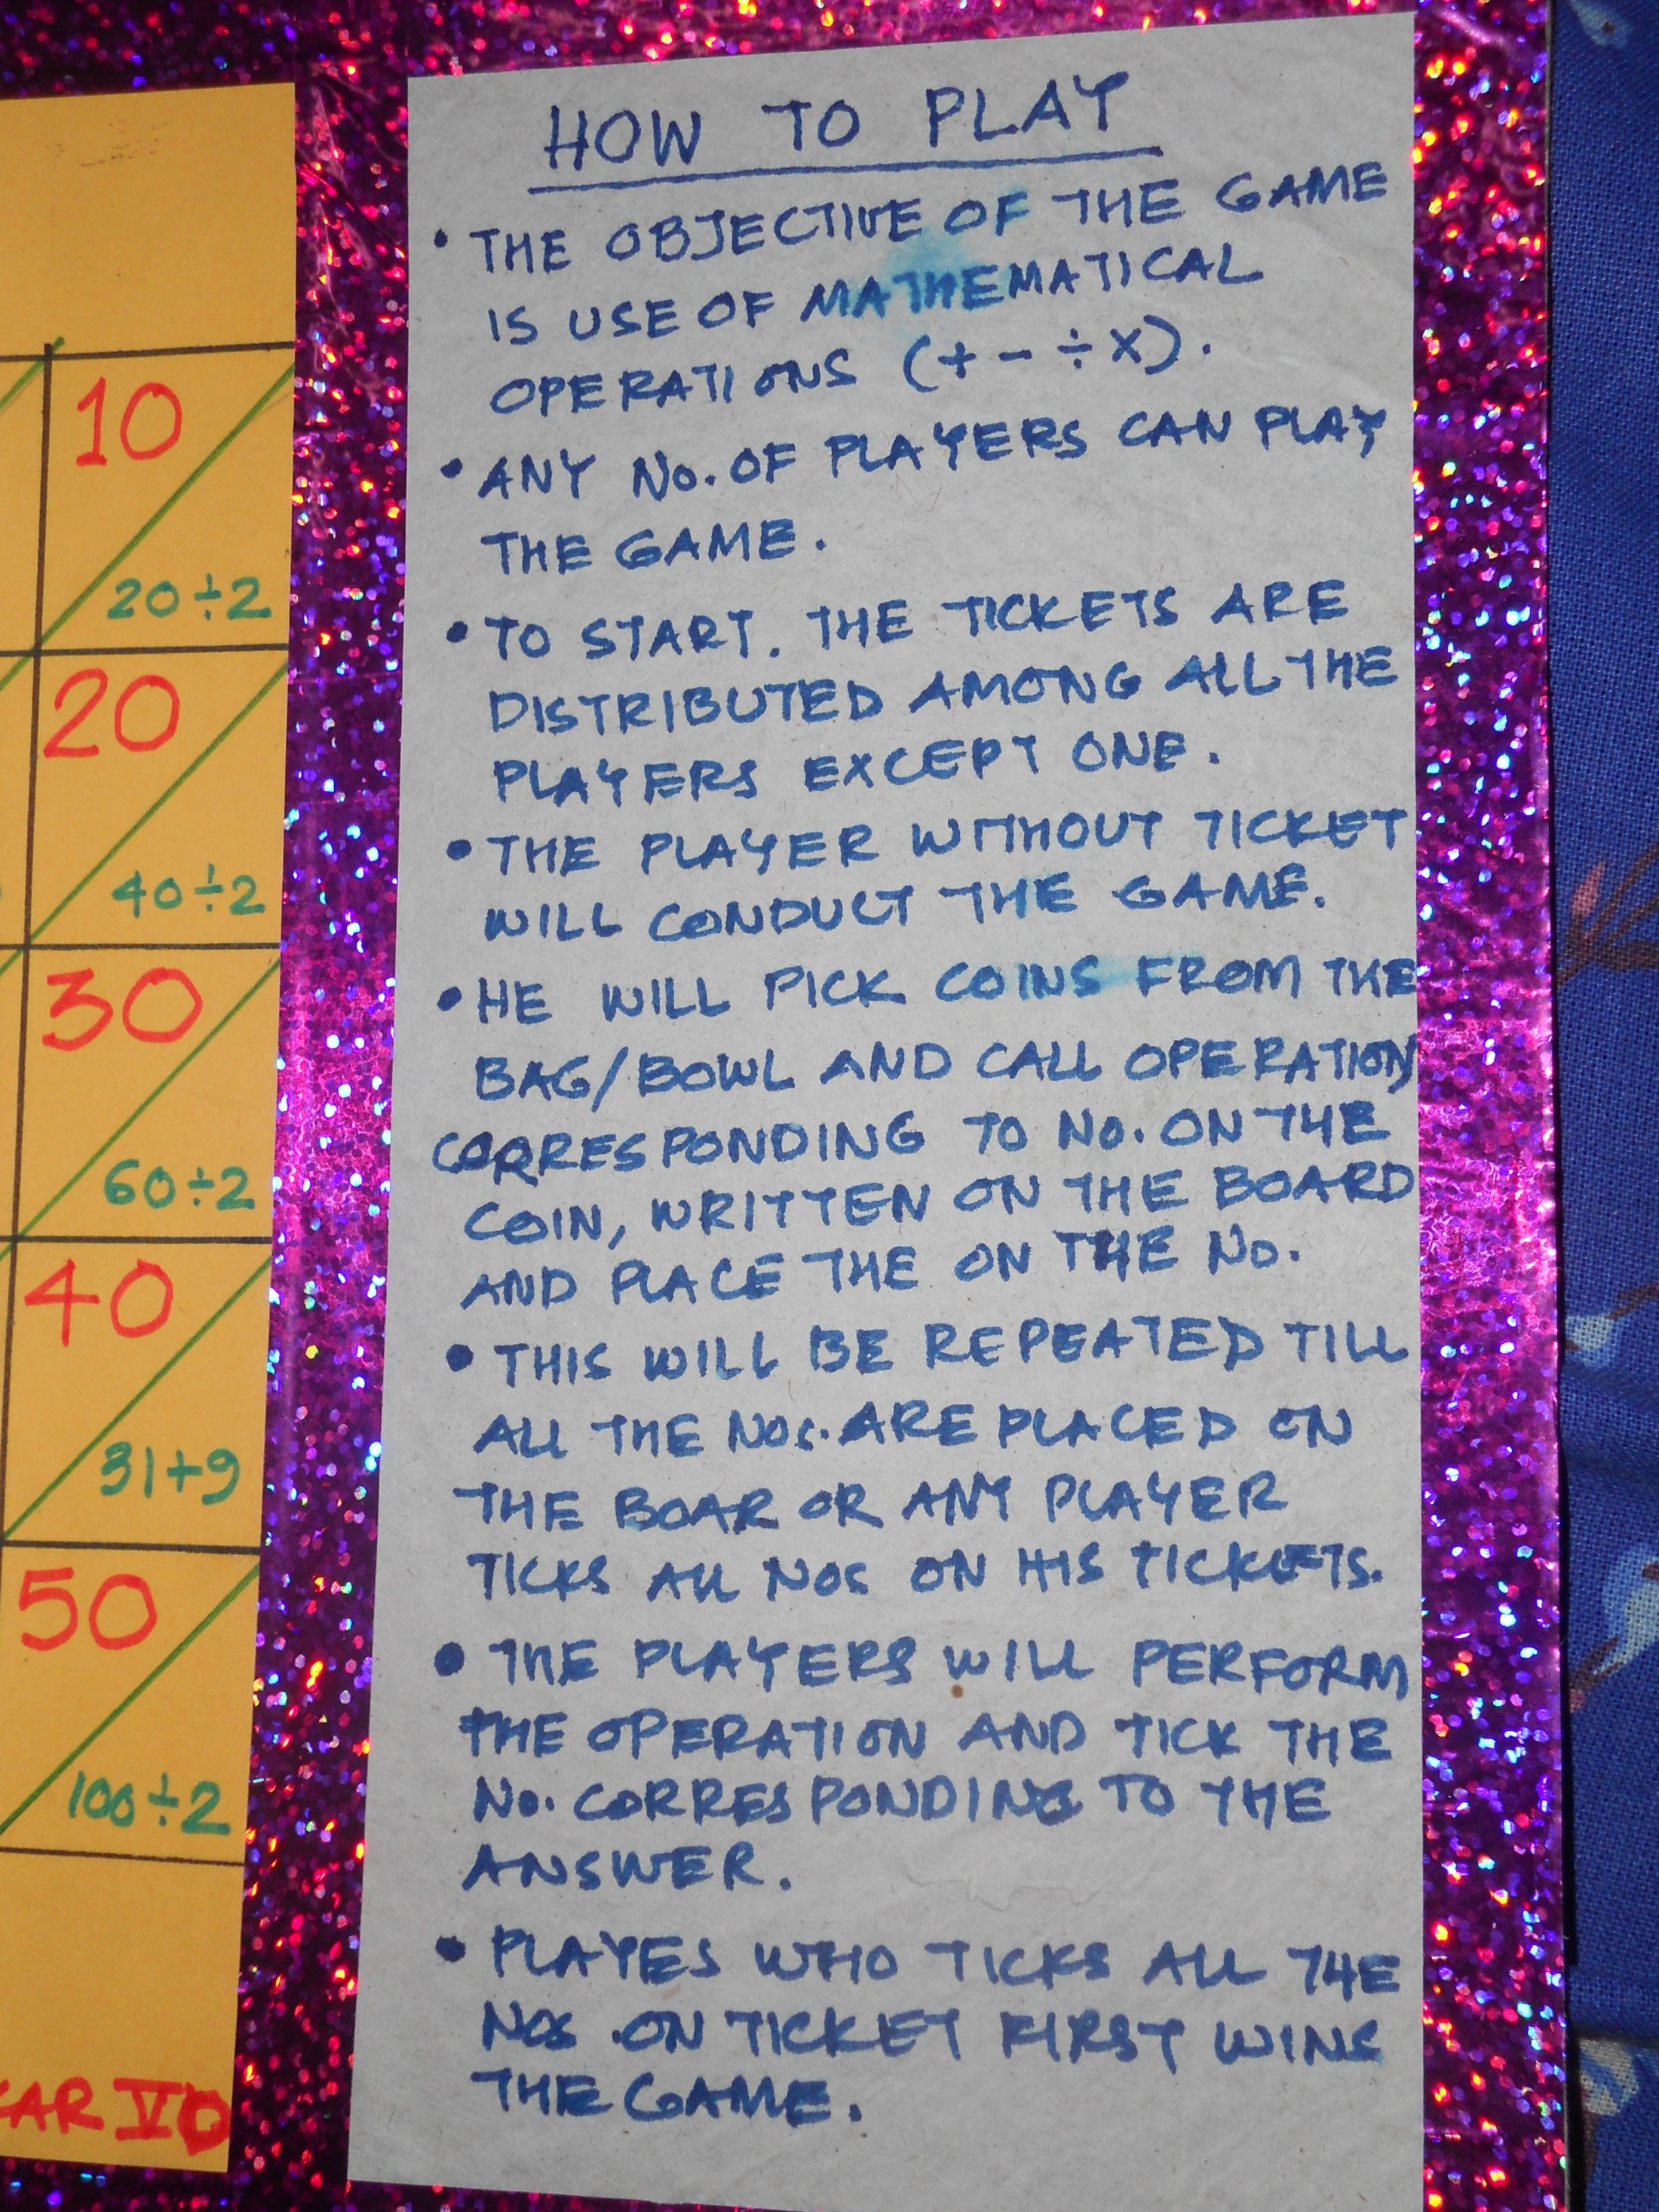 10
20÷2
20
40÷2
30
60÷2
40
31+9
50
100÷2
KAR VD
HOW TO PLAY
• THE OBJECTIVE OF THE GAME
IS USE OF MATHEMATICAL
OPERATIONS (+ - ÷ x).
• ANY No. OF PLAYERS CAN PLAY
THE GAME.
• TO START. THE TICKETS ARE
DISTRIBUTED AMONG ALL THE
PLAYERS EXCEPT ONE.
• THE PLAYER WITHOUT TICKET
WILL CONDUCT THE GAME.
• HE WILL PICK COINS FROM THE
BAG/BOWL AND CALL OPERATION
CORRESPONDING TO No. ON THE
COIN, WRITTEN ON THE BOARD
AND PLACE THE ON THE No.
• THIS WILL BE REPEATED TILL
ALL THE NOS. ARE PLACED ON
THE BOAR OR ANY PLAYER
TICKS ALL NOS ON HIS TICKETS.
• THE PLAYERS WILL PERFORM
THE OPERATION AND TICK THE
No. CORRESPONDING TO THE
ANSWER.
• PLAYES WHO TICKS ALL THE
NOS ON TICKET FIRST WINS
THE GAME.